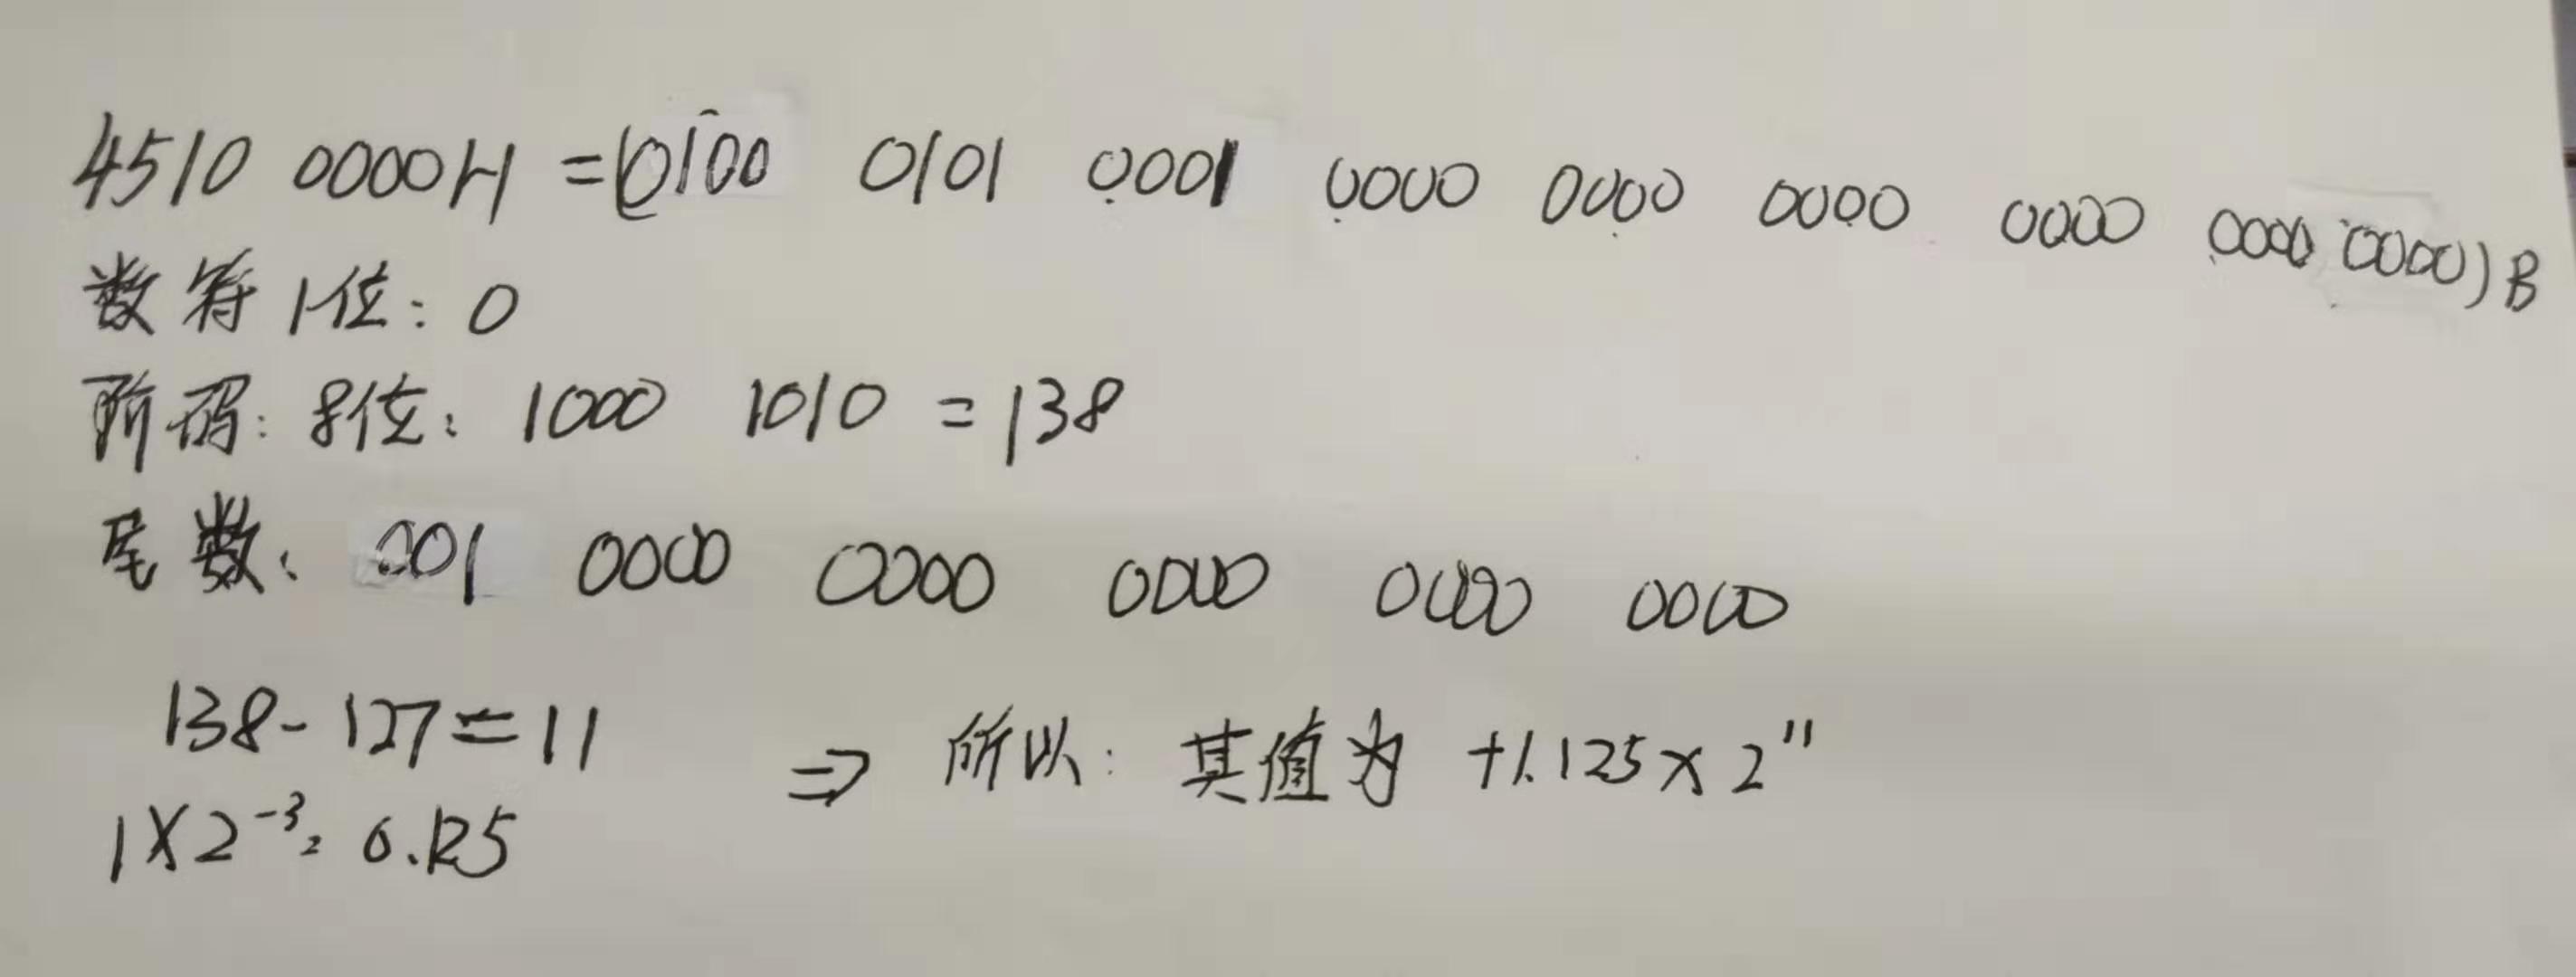 4510 0000H =(0100 0101 0001 0000 0000 0000 0000 0000 0000)B
数符1位: 0
阶码: 8位: 1000 1010 = 138
尾数: 001 0000 0000 0000 0000 0000
138-127=11
1×2⁻³= 0.125
⇒ 所以: 其值为 +1.125×2¹¹